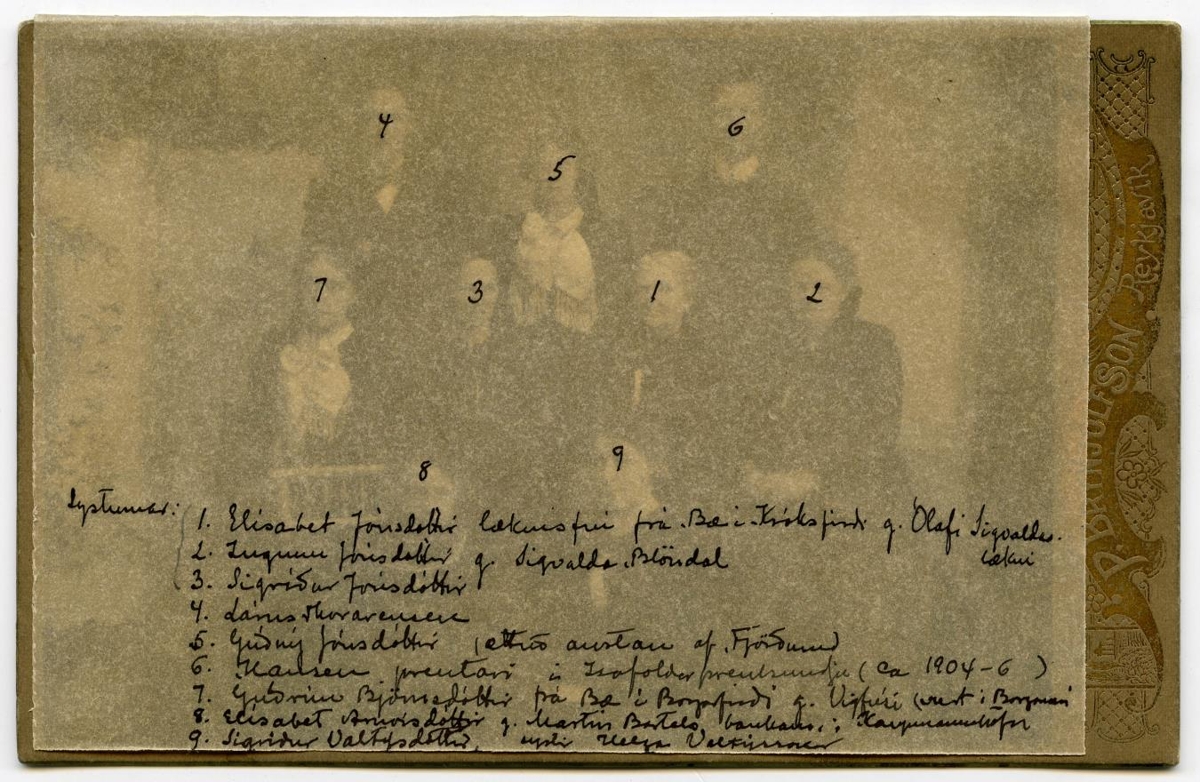 4
6
5
7 3 1 2
8 9
Systurnar: 1. Elísabet Jónsdóttir læknisfrú frá Bæ í Króksfirði g. Ólafi Sigvalda.
lækni
2. Ingunn Jónsdóttir g. Sigvalda Blöndal
3. Sigríður Jónsdóttir
4. Lárus Thorarensen
5. Guðný Jónsdóttir ættuð austan af Fjörðum
6. Hansen prentari í Ísafoldarprentsmiðju (ca 1904-6)
7. Guðrún Björnsdóttir frá Bæ í Borgarfirði g. Vigfúsi (vert í Borgarnesi
8. Elísabet Arnórsdóttir g. Martin Bartels bankam. í Kaupmannahöfn
9. Sigríður Valtýsdóttir, systir Helga Valtýssonar
P. BRYNJÚLFSSON Reykjavík